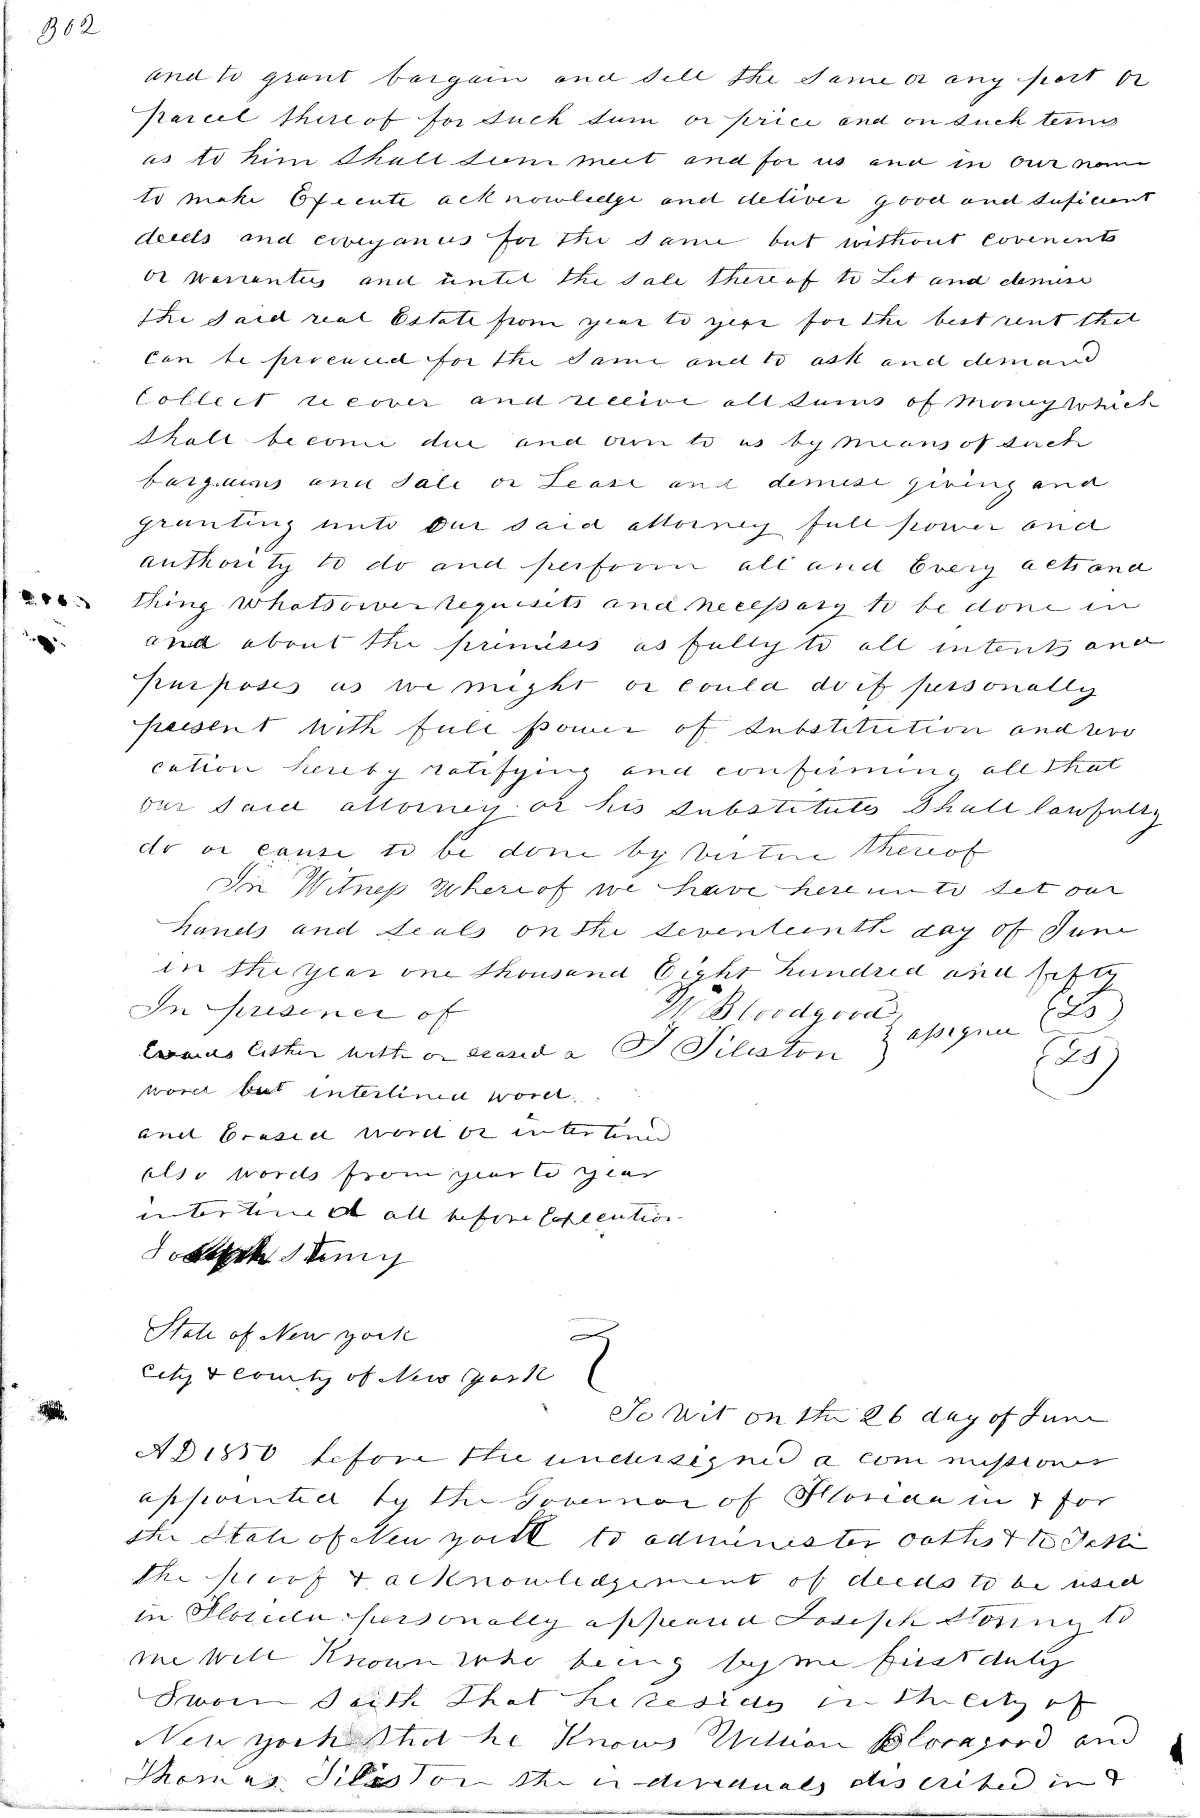 302
and to grant bargain and sell the same or any part or
parcel thereof for such sum or price and on such terms
as to him shall seem meet and for us and in our name
to make Execute acknowledge and deliver good and suficient
deeds and coveyances for the same but without covenents
or warranties and until the sale thereof to Let and demise
the said real Estate from year to year for the best rent that
can be procured for the same and to ask and demand
Collect recover and receive all sums of Money which
shall become due and own to us by means of such
bargains and sale or Lease and demise giving and
granting unto our said attorney full power and
authority to do and perform all and Every acts and
thing whatsower requisits and necessary to be done in
and about the primises as fully to all intents and
purposes as we might or could do if personally
present with full power of substitution and revo
cation hereby ratifying and confirming all that
our said attorney or his substitutes shall lawfully
do or cause to be done by virtue thereof
In Witness whereof we have hereunto set our
hands and seals on the seventeenth day of June
in the year one thousand Eight hundred and fifty
In presence of W Bloodgood (LS)
Either with or erased a T Tileston } assignee (LS)
word but interlined word
and Erased word or interlined
also words from year to year
interlined all before Execution
Joseph Strong
State of New york
City & County of New york }
To Wit on the 26 day of June
AD 1850 before the undersigned a commissioner
appointed by the Governor of Florida in & for
the State of New york to administer oaths & to Take
the proof & acknowledgement of deeds to be used
in Florida personally appeared Joseph Strong to
me well Known who being by me first duly
Sworn saith that he resides in the City of
New york that he Knows William Bloodgood and
Thomas Tileston the individuals discribed in &